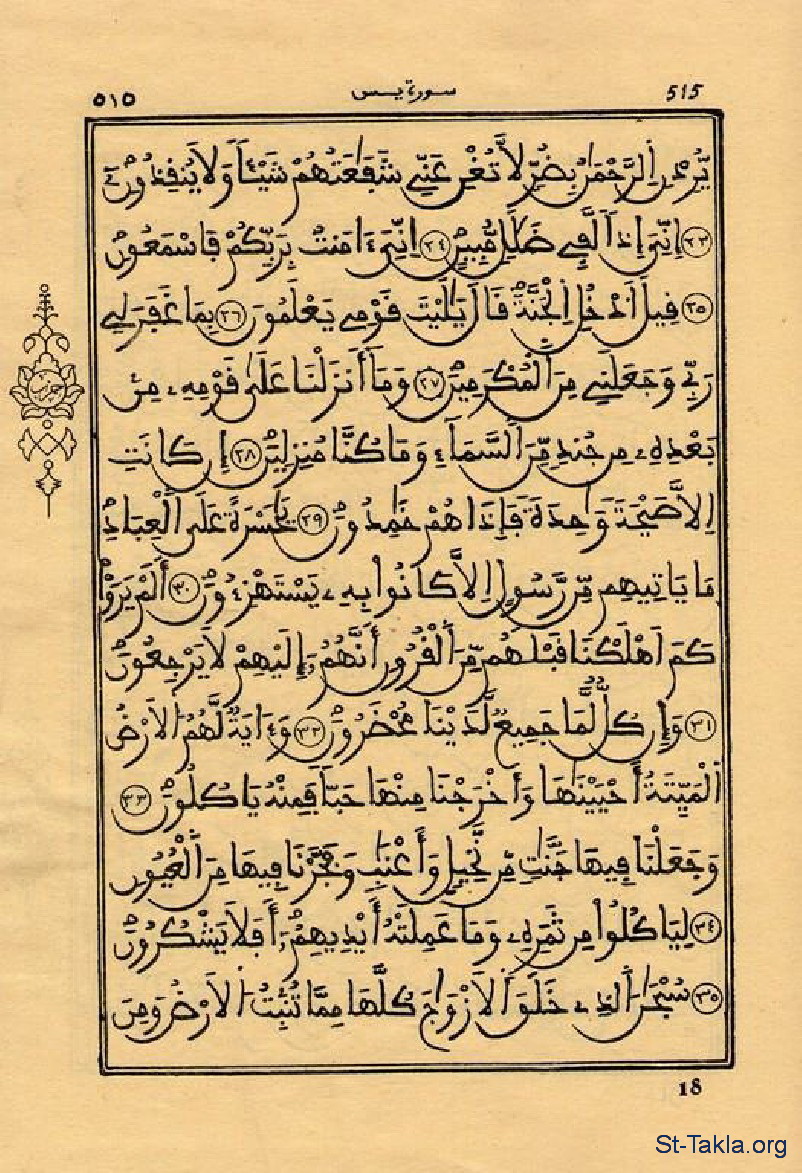 515 سورة يس ٥١٥
يُّرِدْنِ اِلرَّحْمَٰنُ بِضُرٍّ لَّا تُغْنِ عَنِّي شَفَٰعَتُهُمْ شَيْـٔاً وَلَا يُنقِذُونِ
٢٣ إِنِّيَ إِذاً لَّفِي ضَلَٰلٍ مُّبِينٍ ٢٤ اِنِّيَ ءَامَنتُ بِرَبِّكُمْ فَاسْمَعُونِ
٢٥ قِيلَ اَدْخُلِ اِلْجَنَّةَ قَالَ يَٰلَيْتَ قَوْمِي يَعْلَمُونَ ٢٦ بِمَا غَفَرَ لِي
رَبِّي وَجَعَلَنِي مِنَ اَلْمُكْرَمِينَ ٢٧ وَمَا أَنزَلْنَا عَلَىٰ قَوْمِهِۦ مِنۢ
بَعْدِهِۦ مِن جُندٍ مِّنَ اَلسَّمَآءِ وَمَا كُنَّا مُنزِلِينَ ٢٨ إِن كَانَتِ
اِلَّا صَيْحَةً وَٰحِدَةً فَإِذَا هُمْ خَٰمِدُونَ ٢٩ يَٰحَسْرَةً عَلَى اَلْعِبَادِ
مَا يَاتِيهِم مِّن رَّسُولٍ اِلَّا كَانُواْ بِهِۦ يَسْتَهْزِءُونَ ٣٠ أَلَمْ يَرَوْاْ
كَمَ اَهْلَكْنَا قَبْلَهُم مِّنَ اَلْقُرُونِ أَنَّهُمُۥٓ إِلَيْهِمْ لَا يَرْجِعُونَ
٣١ وَإِن كُلٌّ لَّمَا جَمِيعٌ لَّدَيْنَا مُحْضَرُونَ ٣٢ وَءَايَةٌ لَّهُمُ اُلَارْضُ
اُلْمَيِّتَةُ أَحْيَيْنَٰهَا وَأَخْرَجْنَا مِنْهَا حَبّاً فَمِنْهُ يَاكُلُونَ ٣٣
وَجَعَلْنَا فِيهَا جَنَّٰتٍ مِّن نَّخِيلٍ وَأَعْنَٰبٍ وَفَجَّرْنَا فِيهَا مِنَ اَلْعُيُونِ
٣٤ لِيَاكُلُواْ مِن ثَمَرِهِۦ وَمَا عَمِلَتْهُ أَيْدِيهِمُۥٓ أَفَلَا يَشْكُرُونَ
٣٥ سُبْحَٰنَ اَلذِي خَلَقَ اَلَازْوَٰجَ كُلَّهَا مِمَّا تُنۢبِتُ اُلَارْضُ وَمِنَ
18
St-Takla.org